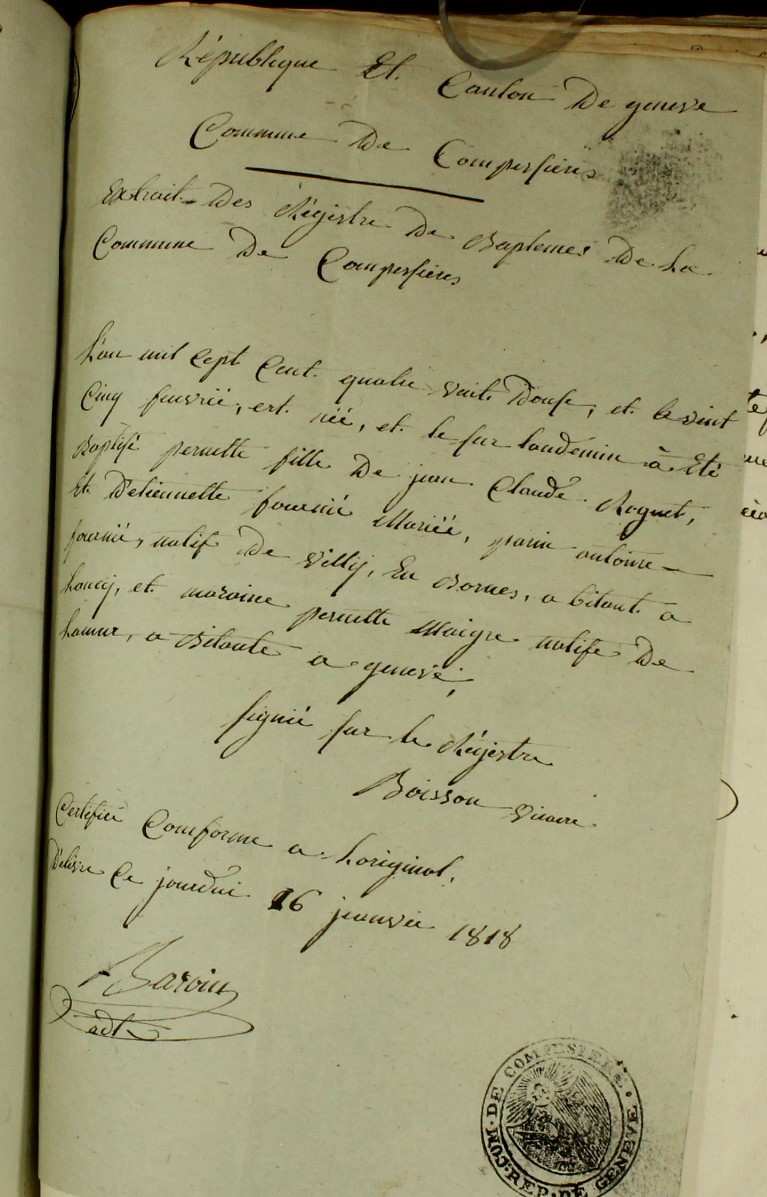 République Et. Canton De geneve
Commune De Compesieres
Extrait Des Régistre De Baptemes De La
Commune De Compesieres
L'an mil Cept Cent. quatre vint Douse, et le vint
Cinq feuvrié, est née, et le sur landemin à Eté
Baptisé pernette fille De jean Claude Roguet,
Et D'etiennette fournié Mariéé, parin antoine
fournié, natif De Villy, En Bornes, a bitant a
Lancy, et maraine pernette Maigre natife De
, a Bitante a genevé,
signié sur le Régistre
Boisson vicaire
Certifiéé Comforme a Loriginal.
Delivre Ce jourdui 16 janvié 1818
Baroin
adt
COM: DE COMPESIERE. REP: DE GENEVE